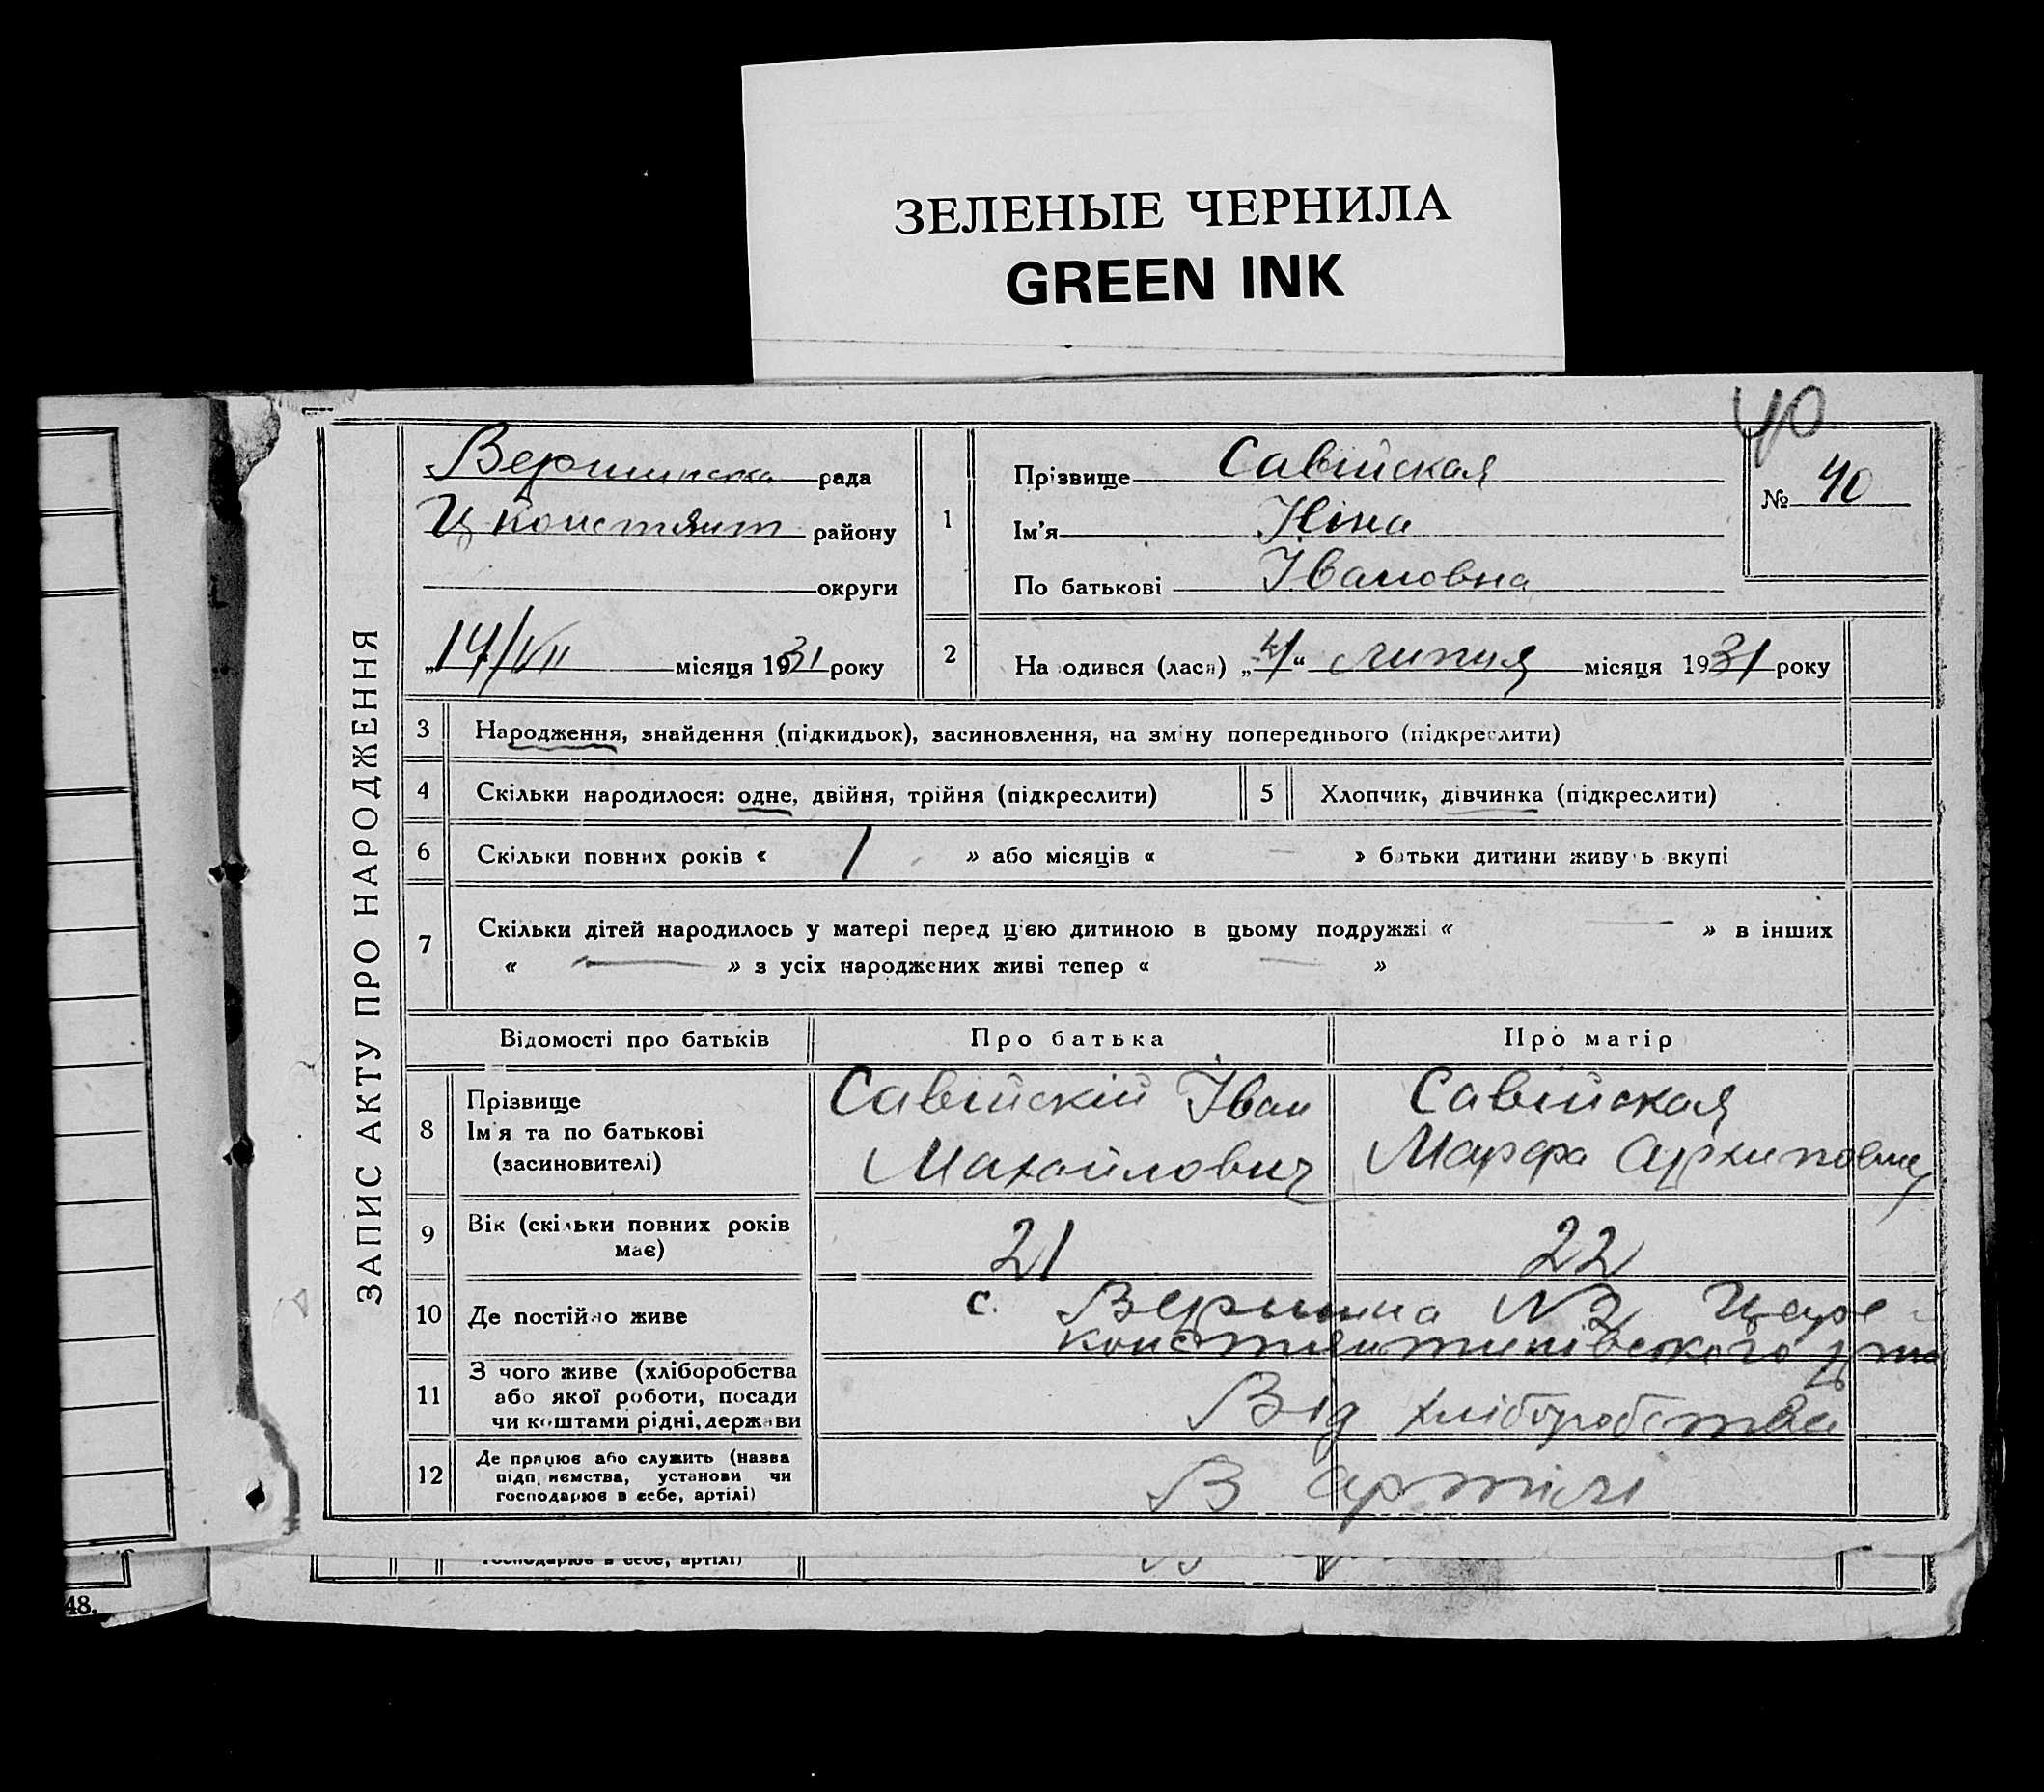 ЗЕЛЕНЫЕ ЧЕРНИЛА
GREEN INK
40
ЗАПИС АКТУ ПРО НАРОДЖЕННЯ
Вершинска рада
Ц Констянт району
округи
„14/VII місяця 1931 року
1
Прізвище Савійская
Ім'я Ніна
По батькові Івановна
№ 40
2 На одився (лася) „4“ липня місяця 1931 року
3 Народження, знайдення (підкидьок), засиновлення, на зміну попереднього (підкреслити)
4 Скільки народилося: одне, двійня, трійня (підкреслити) 5 Хлопчик, дівчинка (підкреслити)
6 Скільки повних років « 1 » або місяців « — » батьки дитини живуть вкупі
7 Скільки дітей народилось у матері перед цією дитиною в цьому подружжі « — » в інших
« — » з усіх народжених живі тепер « — »
Відомості про батьків Про батька Про матір
8 Прізвище
Ім'я та по батькові
(засиновителі)
Савійскій Іван
Михайлович
Савійская
Марфа Архиповна
9 Вік (скільки повних років
має)
21 22
10 Де постійно живе с. Вершина №2 Царе-
констянтинівского р-на
11 З чого живе (хліборобства
або якої роботи, посади
чи коштами рідні, держави
Від хліборобства
12 Де працює або служить (назва
підприємства, установи чи
господарює в себе, артілі)
В артілі
господарює в себе, артілі)
48.